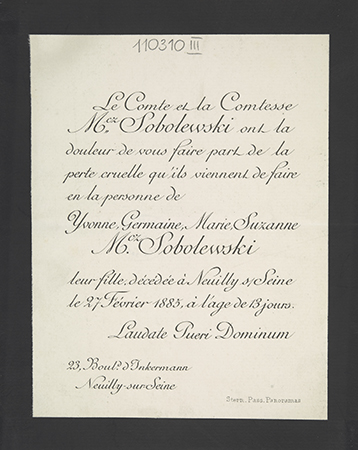 110310 III
Le Comte et la Comtesse
Mcz Sobolewski ont la
douleur de vous faire part de la
perte cruelle qu'ils viennent de faire
en la personne de
Yvonne, Germaine, Marie, Suzanne
Mcz Sobolewski
leur fille, décédée à Neuilly s/Seine
le 27 Février 1883, à l'âge de 13 jours.
Laudate Pueri Dominum
23, Boulᵈ d'Inkermann
Neuilly-sur-Seine
Stern, Pass. Panoramas